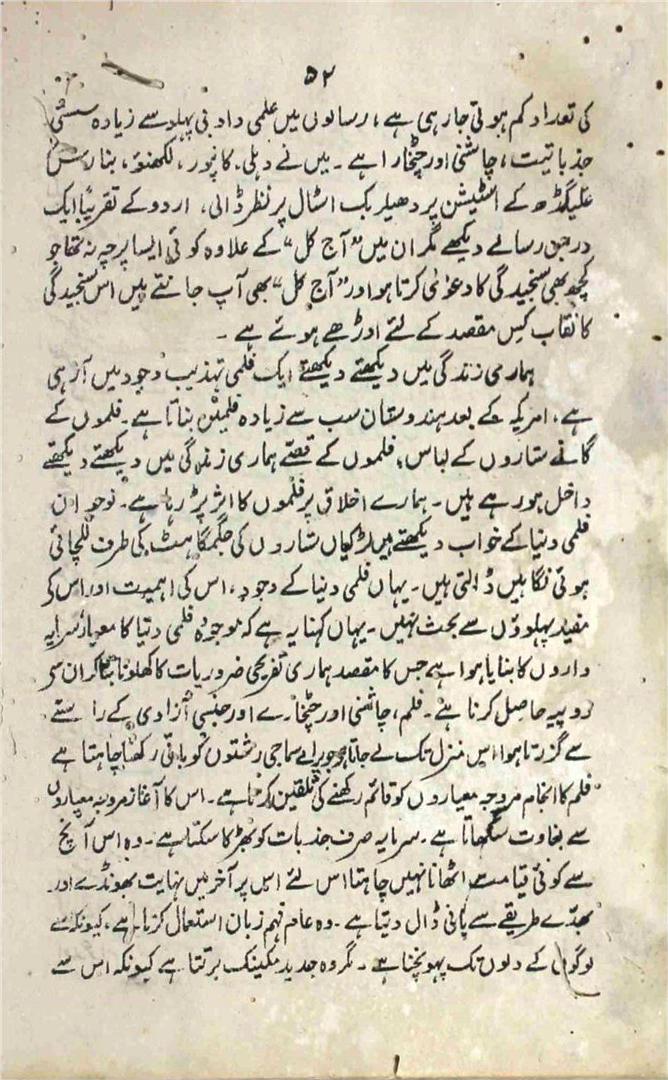 ۵۲
کی تعداد کم ہوتی جارہی ہے، رسالوں میں علمی وادبی پہلو سے زیادہ سستی
جذباتیت، چاشنی اور چٹخارا ہے۔ میں نے دہلی، کانپور، لکھنؤ، بنارس
علیگڈھ کے اسٹیشن پر دھیلر بک اسٹال پر نظر ڈالی، اردو کے تقریباً ایک
درجن رسالے دیکھے مگر ان میں "آج کل" کے علاوہ کوئی ایسا پرچہ نہ تھا جو
کچھ بھی سنجیدگی کا دعوٰی کرتا ہو اور "آج کل" بھی آپ جانتے ہیں اس سنجیدگی
کا نقاب کس مقصد کے لئے اوڑھے ہوئے ہے۔
ہماری زندگی میں دیکھتے دیکھتے ایک فلمی تہذیب وجود میں آرہی
ہے، امریکہ کے بعد ہندوستان سب سے زیادہ فلمیں بناتا ہے۔ فلموں کے
گانے ستاروں کے لباس، فلموں کے قصے ہماری زندگی میں دیکھتے دیکھتے
داخل ہورہے ہیں۔ ہمارے اخلاق پر فلموں کا اثر پڑ رہا ہے۔ نوجوان
فلمی دنیا کے خواب دیکھتے ہیں لڑکیاں ستاروں کی جگمگاہٹ کی طرف للچائی
ہوئی نگاہیں ڈالتی ہیں۔ یہاں فلمی دنیا کے وجود، اس کی اہمیت اور اس کے
مفید پہلوؤں سے بحث نہیں۔ یہاں کہنا یہ ہے کہ موجودہ فلمی دنیا کا معیار سرمایہ
داروں کا بنایا ہوا ہے جس کا مقصد ہماری تفریحی ضروریات کا کھلونا بناکر ان سے
روپیہ حاصل کرنا ہے۔ فلم، چاشنی اور چٹخارے اور جنسی آزادی کے راستے
سے گزرتا ہوا اس منزل تک لے جاتا ہے جو پرانے سماجی رشتوں کو باقی رکھنا چاہتا ہے
فلم کا انجام مروجہ معیاروں کو قائم رکھنے کی تلقین کرتا ہے۔ اس کا آغاز مروجہ معیاروں
سے بغاوت سکھاتا ہے۔ سرمایہ صرف جذبات کو بھڑکا سکتا ہے۔ وہ اس آنچ
سے کوئی قیامت اٹھانا نہیں چاہتا اس لئے اس پر آخر میں نہایت بھونڈے اور
بھدّے طریقے سے پانی ڈال دیتا ہے۔ وہ عام فہم زبان استعمال کرتا ہے، کیونکہ اسے
لوگوں کے دلوں تک پہونچنا ہے۔ مگر وہ جدید ٹکینک برتتا ہے کیونکہ اس سے